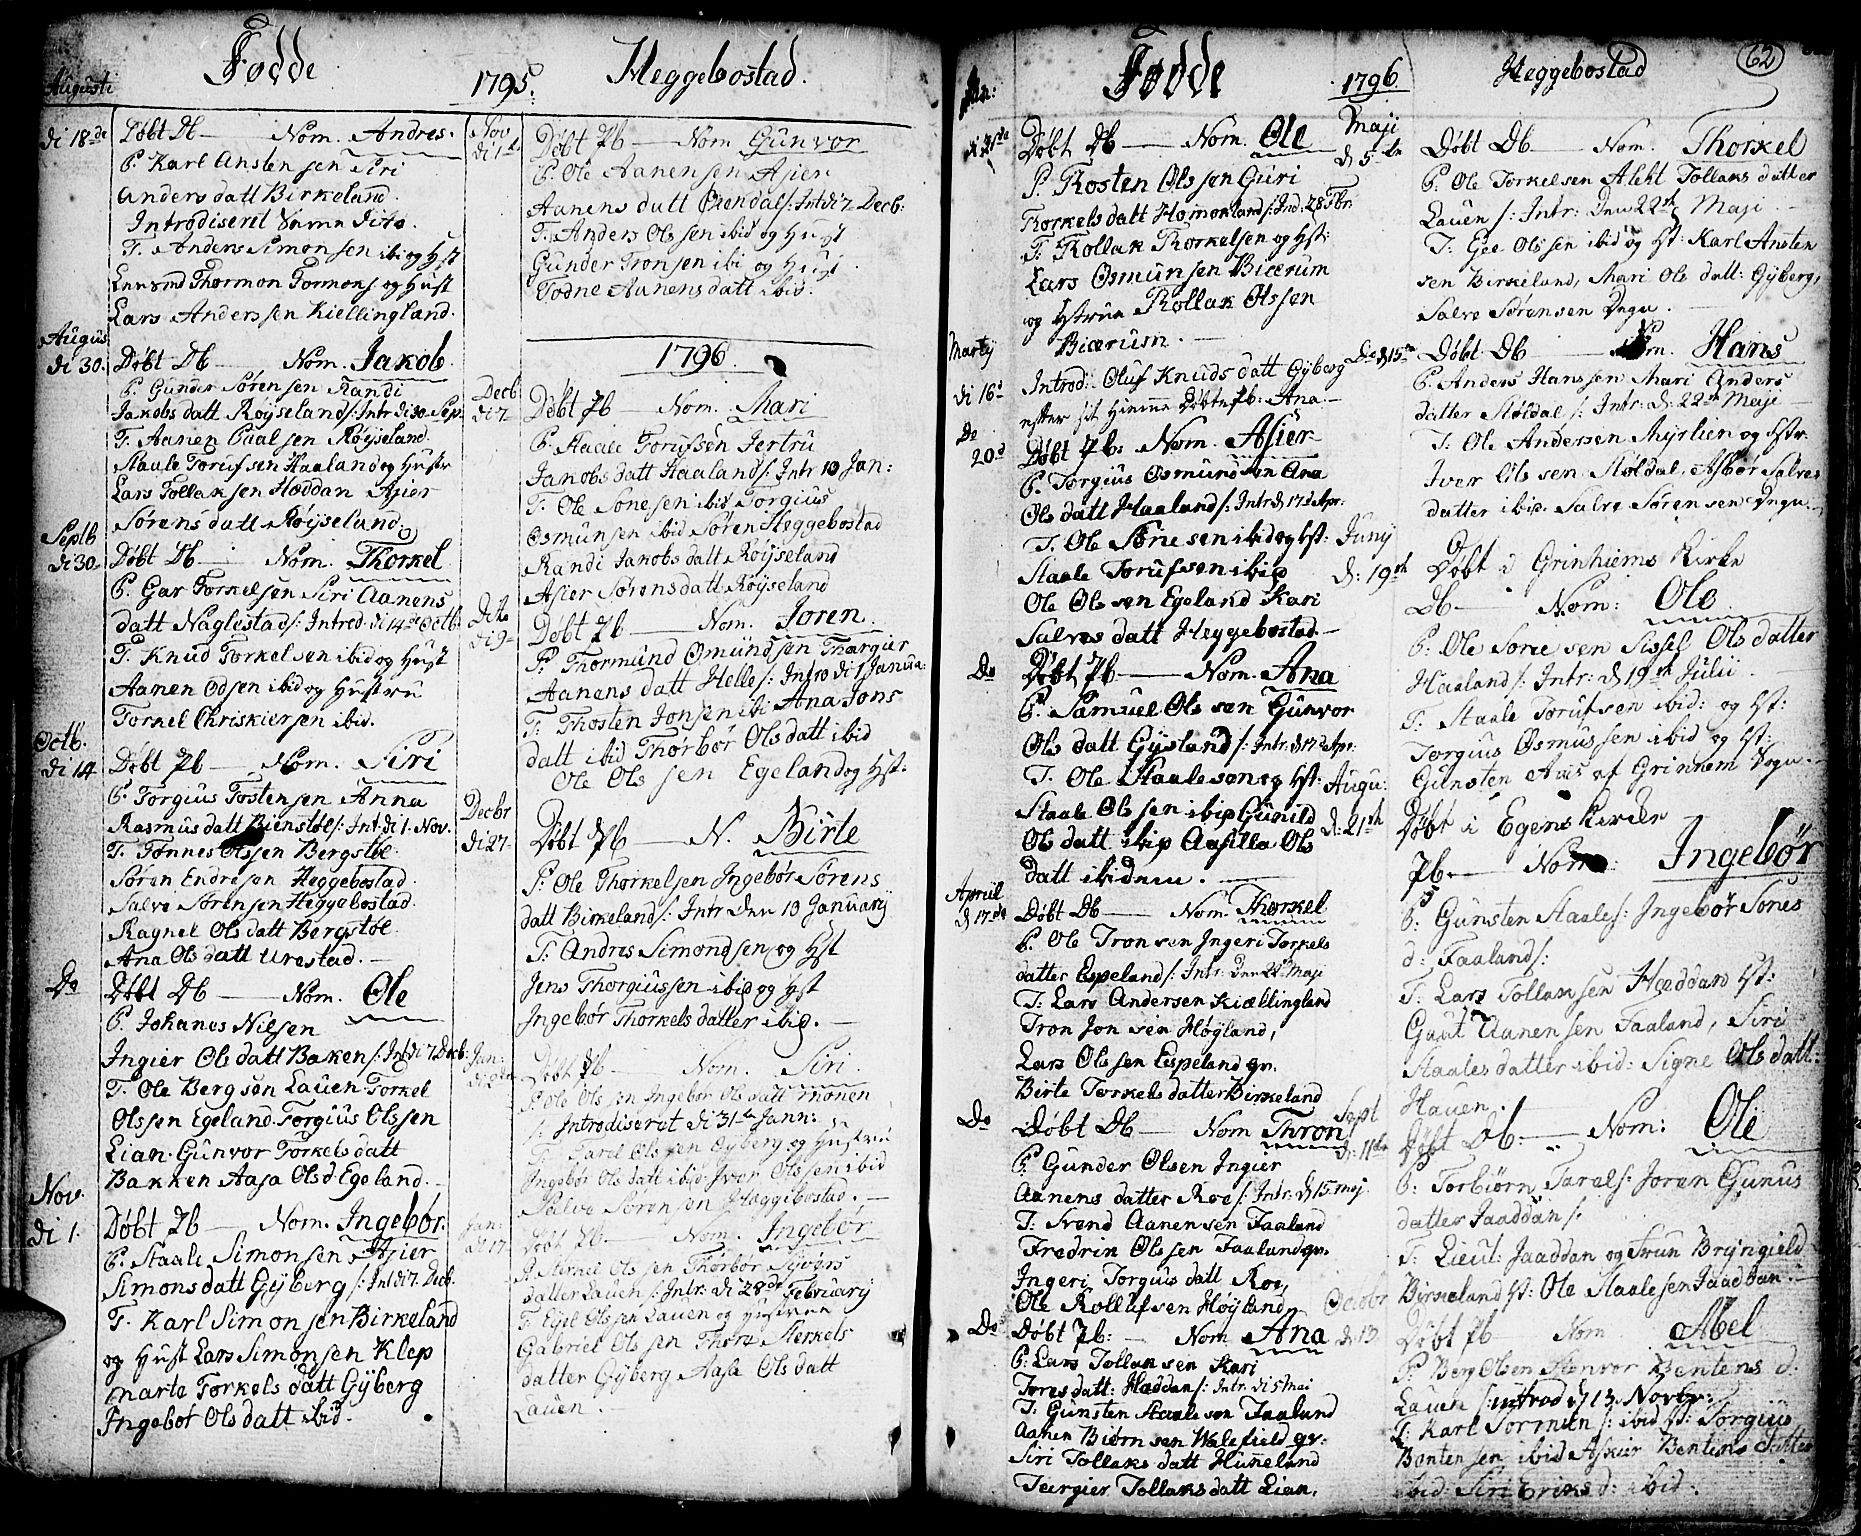 Fødde 1795. Heggebostad.
Augusti
di 18de
Døbt Db — Nom. Andres.
P. Karl Anstensen Siri
Anders datt Birkeland.
Introdiserit Samme Dito.
T. Anders Simonsen ibi og Hst
Thormon Tormons og Hust
Lars Anderssen Kiellingland.
Augus
di 30.
Døbt Db — Nom. Jakob.
P. Gunder Sørensen Randi
Jakobs datt Røijseland /: Intr di 30 Sep.
T. Aanen Paalsen Røijseland.
Staale Torufsen Haaland og Hustr
Lars Tollaksen Hæddan Asier
Sørens datt Røijseland.
Septb
di 30
Døbt Db — Nom. Thorkel
P. Gar Torkelsen Siri Aanens
datt Naglestad /: Introd. di 14de Octb.
T. Knud Torkelsen ibid og Hust
Aanen Odsen ibid og Hustru
Torkel Chriskiersen ibid.
Octb.
di 14
Døbt Pb — Nom. Siri
P. Torgius Tostensen Anna
Rasmus datt Bienstøl /: Int di 1. Nov.
T. Tønnes Olssen Bergstøl.
Søren Endresen Heggebostad.
Salve Sørensen Heggebostad.
Ragnel Ols datt Bergstøl.
Ana Ols datt Urestad. —
Do
Døbt Db — Nom. Ole
P. Johanes Nilsen
Ingier Ols datt Baken /: Int di 7 Decb:
T. Ole Bergsen Lauen. Torkel
Olssen Egeland. Torgius Olssen
Lian. Gunvor Torkels datt
Bakken Aasa Ols d Egeland. —
Nov.
di 1.
Døbt Pb — Nom. Ingebør.
P. Staale Simonsen Asier
Simons datt Gijberg /: Int di 7. Decb.
T. Karl Simonsen Birkeland
og Hust Lars Simonsen Klep
Marte Torkels datt Gijberg
Ingebør Ols datt ibid.
Nov
di 1t
Døbt Pb — Nom Gunvor
P. Ole Aanensen Asier
Aanens datt Ørendal /: Int di 7 Decb:
T. Anders Olssen ibid og Hust
Gunder Tronsen ibi og Hust.
Todne Aanens datt ibid.
1796.
Decb
di 7
Døbt Pb — Nom. Mari
P. Staale Torufsen Jertru
Jakobs datt Haaland /: Intr 10 Jan:
T. Ole Sonesen ibid Torgius
Osmunsen ibid Søren Heggebostad
Randi Jakobs datt Røijseland
Asier Sørens datt Røijseland
Dito
di 9
Døbt Pb — Nom. Joren.
P. Thormund Osmundsen Thargier
Aanens datt Helle /: Intro di 1 Janua:
T. Thosten Jonsen ibi Ana Jons
datt ibid Thorbør Ols datt ibid
Ole Olssen Egeland og Hst.
Decbr
di 27
Døbt Pb — N. Birte
P. Ole Thorkelsen Ingebør Sørens
datt Birkeland /: Intr den 10 January
T. Andres Simondsen og Hst
Jens Thorgiussen ibid og Hst
Ingebør Thorkels datter ibid. —
Jan:
Døbt Pb — Nom. Siri.
P. Ole Olssen Ingebør Ols datt Monen
/: Introdiseret di 31te Jann:
T. Karel Olssen Gyberg og Hustru
Ingebør Ols datt ibid. Iver Olssen ibid
Salve Sørensen Heggebostad. —
Jan:
di 17
Døbt Pb — Nom. Ingebør
P. Olssen Thorbør Sijvers
datter Lauen /: Intr: di 28de February
T. Ejel Olssen Lauen og Hustruen
Gabriel Olssen Thore Sterkels
datter Gijberg Aasa Ols datt
Lauen.
Fødde 1796. Heggebostad 62
Jan:
Døbt Db — Nom. Ole
P. Thosten Olssen Guri
Thorkels datt Homonland /: Ind. 28 Fbr.
T. Thollak Thorkelsen og Hst:
Lars Osmunsen Bicerum
og Hstrue Thollak Olssen
Bicerum. —
Marty
di 16d
Introd: Oluf Knuds datt Gijberg
efter sit Hiemme Døbte Pb: Ana. —
Do
20d
Døbt Pb: Nom. Asier
P. Torgius Osmundsen Ana
Ols datt Haaland /: Intr d 17de Apr:
T. Ole Sonesen ibid og Hst:
Staale Torufsen ibid
Ole Olssen Egeland Kari
Salves datt Heggebostad —
Do
Døbt Pb — Nom. Ana
P. Samuel Olssen Gunvor
Ols datt Gijsland /: Intr: d 17de Apr:
T. Ole Staalesen og Hst:
Staale Olssen ibid Gunild
Ols datt ibid Aasilla Ols
datt ibidem. —
Apriil
d 17de
Døbt Db — Nom. Thorkel
P. Ole Tronsen Ingeri Torkels
datter Espeland /: Intr: den 22 Maji
T: Lars Andersen Kiællingland
Tron Jonsen Høgland,
Lars Olssen Espeland gr.
Birte Torkels datter Birkeland
Do
Døbt Db — Nom Thron
P. Gunder Olsen Ingier
Aanens datter Roe /: Intr: d 15 Maj.
T: Svend Aanensen Faaland
Fredrik Olssen Faaland gr.
Ingeri Torgius datt Roe,
Ole Rollufsen Høyland,
Do
Døbt Pb: — Nom Ana
P: Lars Tollaksen Kari
Tores datt: Hæddan /: Intr. di 5 Mai
T: Gunsten Staalesen Faaland
Aanen Biørnsen Walefield gr:
Siri Tollaks datt Huneland
Teirgier Tollaks datt Lian,
Maji
d 5te
Døbt Db — Nom. Thorkel
P. Ole Torkelsen Alekt Tollaks datter
Lauen /: Intr: den 22th Maji —
T: Gee Olssen ibid og Hst: Karl Ansten
sen Birkeland, Mari Ole datt: Gijberg,
Salve Sørensen Degn. —
Do d 15te
Døbt Db — Nom. Hans
P. Anders Hanssen Mari Anders
datter Støldal /: Intr: d: 22de Maji
T: Ole Andersen Myrlien og Hstr.
Iver Olssen Støldal, Asbør Salves
datter ibid. Salve Sørensen Degn. —
Juny
d: 19th
Døbt i Grinhiems Kirke
Db — Nom: Ole
P. Ole Sonesen Sissel Ols datter
Haaland /: Intr: d 19th Julii
T. Staale Torufsen ibid: og Hst:
Torgius Osmussen ibid og Hst:
Gunsten Aas af Grinnem Degn.
Augu:
d: 21th
Døbt i Egens Kircke
Pb. — Nom: Ingebør
P: Gunsten Staales: Ingebør Sones
d: Faaland /:
T. Lars Tollaksen Hæddan Hst:
Gaut Aanensen Faaland, Siri
Staales datter ibid: Signe Ols datt:
Hauen.
Sept
d: 11te
Døbt Db. — Nom: Ole
P: Torbiørn Tarals: Joren Gunus
datter Jaaddan /:
T: Lieut: Jaaddan og Frun Bryngield
Birkeland Hst: Ole Staalesen Jaaddan. —
Octobr
d 13
Døbt Pb — Nom Abel
P. Berg Olsen Stenvor Bentens d:
Lauen /: introd d 13 Novbr:
T: Karl Sormun /: ibid Hst: Torgius
Bentensen ibid Askier Bentens datter
ibid. Siri Eriks d: ibid.